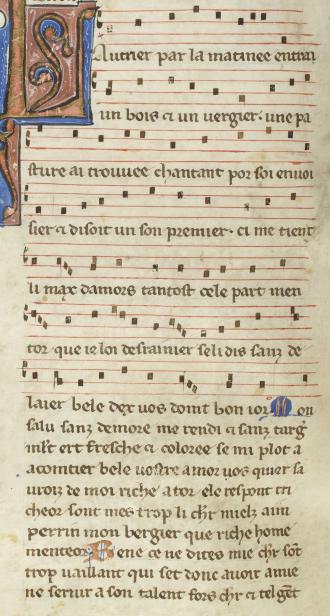 Lautrier par la matinee entran
un bois & un vergier. une pa
sture ai trouuee chantant por soi enuoi
sier & disoit un son premier. ci me tient
li max damors tantost cele part men
tor que ie loi desrainier se li dis sanz de
laier bele dex uos doint bon ior Mon
salu sanz demore me rendi & sanz targ
mlt ert fresche & coloree se mi plot a
acointier bele uostre amor uos quier sa
uroiz de moi riche ator ele respont tri
cheor sont mes trop li chr mielz aim
perrin mon bergier que riche home
menteor Bene ce ne dites mie chr sont
trop uaillant qui set donc auoir amie
ne seruir a son talent fors chr & tel gent